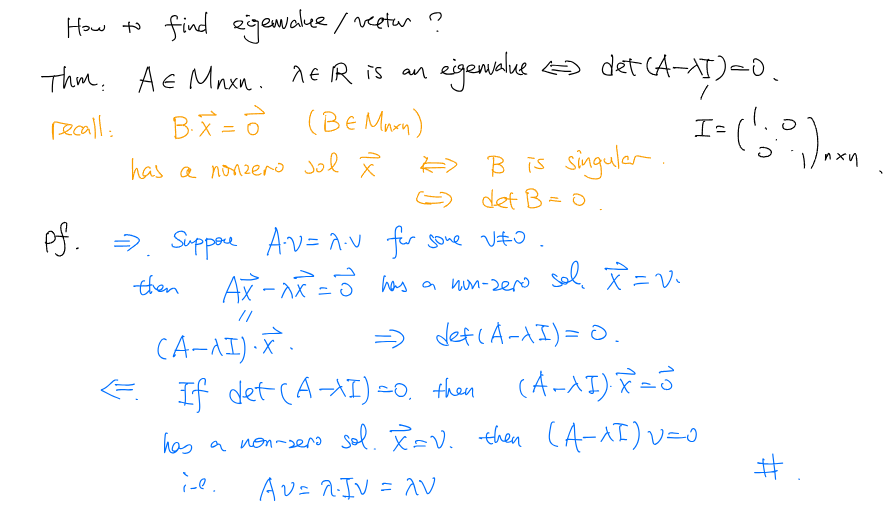 How to find eigenvalue/vector ?
Thm. A ∈ Mn×n. λ ∈ R is an eigenvalue ⟺ det(A-λI)=0.
recall: B·x⃗ = 0⃗ (B ∈ Mn×n)
I = (1 . 0 0 . 1)n×n
has a nonzero sol x⃗ ⟺ B is singular.
⟺ det B = 0.
pf. ⇒. Suppose A·v = λ·v for some v≠0.
then Ax⃗ - λx⃗ = 0⃗ has a non-zero sol. x⃗ = v.
"
(A-λI)·x⃗. ⇒ det(A-λI) = 0.
⇐. If det(A-λI)=0. then (A-λI)·x⃗ = 0⃗
has a non-zero sol. x⃗ = v. then (A-λI)v=0
i.e. Av = λ·Iv = λv #.